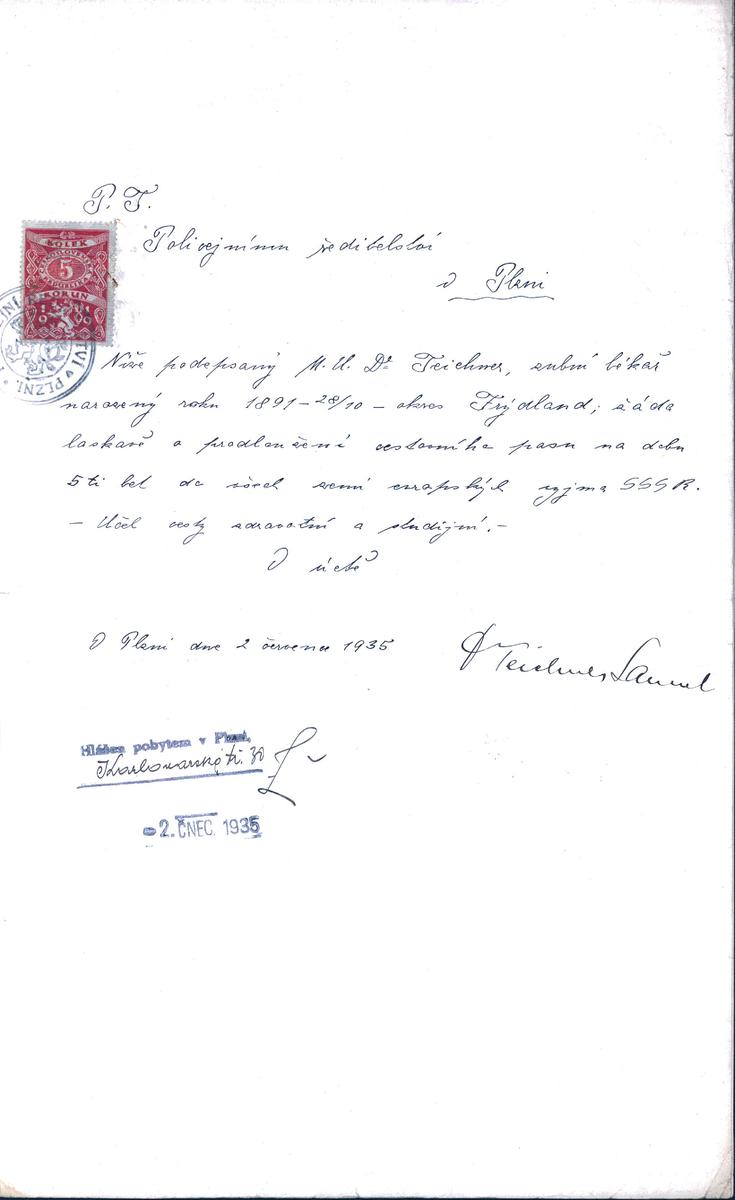 P. T.
Policejnímu ředitelství
v Plzni
KOLEK
5
KORUN
Níže podepsaný M. U. Dr Teichner, zubní lékař
narozený roku 1891 – 28/10 – okres Frýdland; žádá
laskavě o prodloužení cestovního pasu na dobu
5ti let do všech zemí evropských vyjma SSSR.
– Účel cesty zdravotní a studijní. –
V úctě
V Plzni dne 2 července 1935
Dr Teichner Samuel
Hlášen pobytem v Plzni,
Karlovarská tř. 30
2. ČNEC. 1935